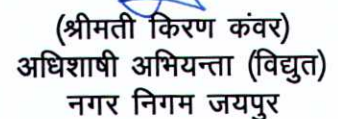 (श्रीमती किरण कंवर)
अधिशाषी अभियन्ता (विद्युत)
नगर निगम जयपुर